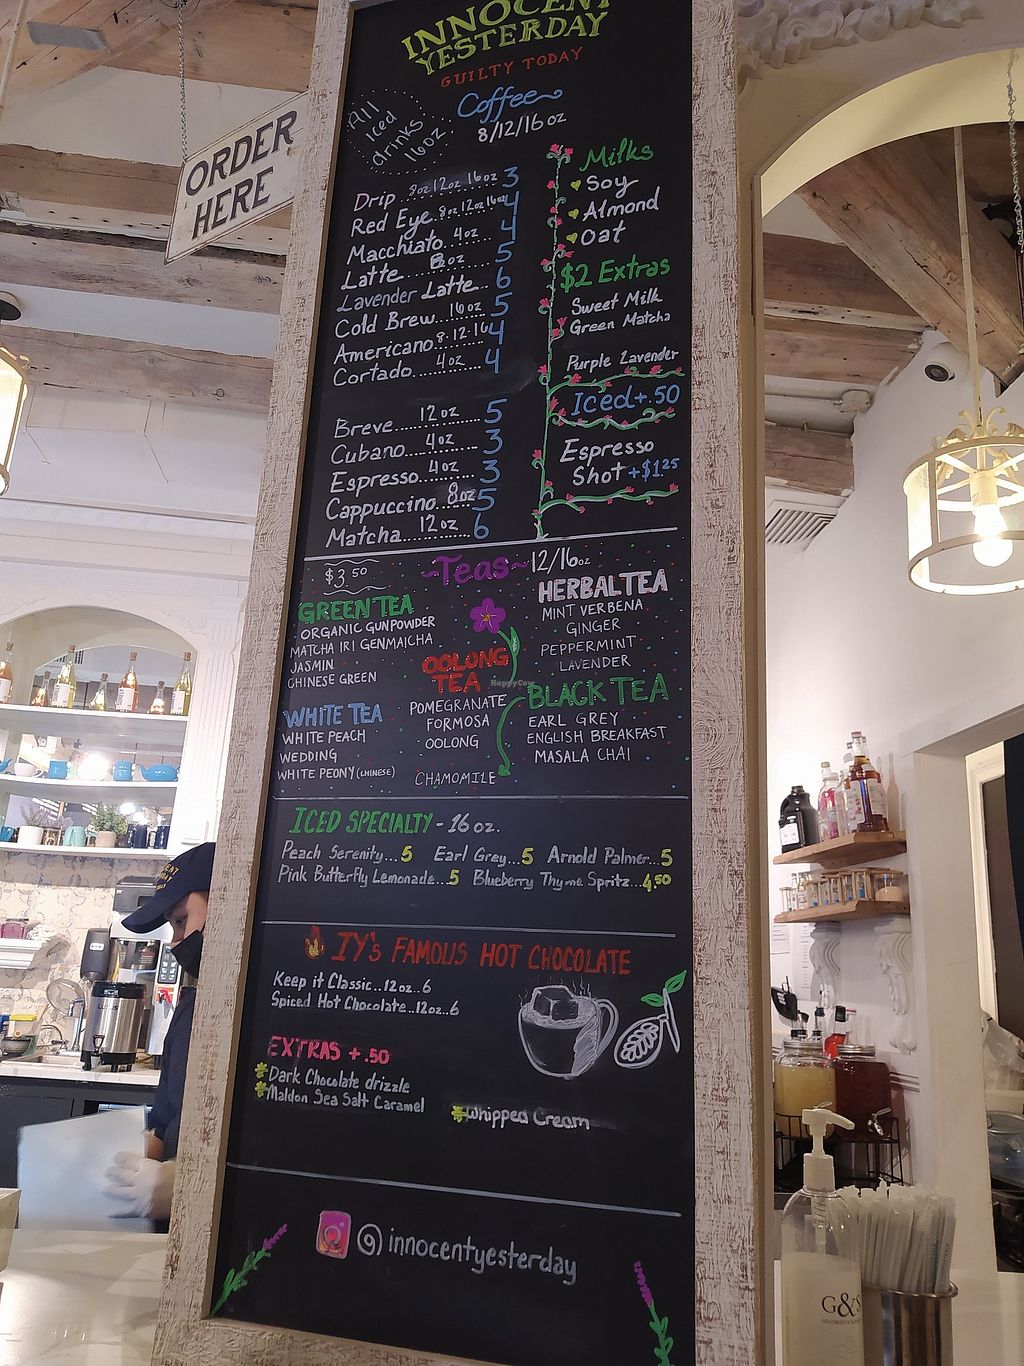 INNOCENT
YESTERDAY
GUILTY TODAY
ORDER
HERE
All
Iced
drinks
16oz
Coffee
8/12/16 oz
Drip 8oz 12oz 16oz 3
Red Eye 8oz 12oz 16oz 4
Macchiato 4oz 4
Latte 8oz 5
Lavender Latte 6
Cold Brew 16oz 5
Americano 8.12.16 4
Cortado 4oz 4
Breve 12oz 5
Cubano 4oz 3
Espresso 4oz 3
Cappuccino 8oz 5
Matcha 12oz 6
Milks
Soy
Almond
Oat
$2 Extras
Sweet Milk
Green Matcha
Purple Lavender
Iced +.50
Espresso
Shot +$1.25
~Teas~ 12/16oz
$3.50
GREEN TEA
ORGANIC GUNPOWDER
MATCHA IRI GENMAICHA
JASMIN
CHINESE GREEN
WHITE TEA
WHITE PEACH
WEDDING
WHITE PEONY (CHINESE)
OOLONG
TEA
POMEGRANATE
FORMOSA
OOLONG
CHAMOMILE
HERBAL TEA
MINT VERBENA
GINGER
PEPPERMINT
LAVENDER
BLACK TEA
EARL GREY
ENGLISH BREAKFAST
MASALA CHAI
HappyCow
ICED SPECIALTY - 16 oz.
Peach Serenity...5 Earl Grey...5 Arnold Palmer...5
Pink Butterfly Lemonade...5 Blueberry Thyme Spritz...4.50
IY's FAMOUS HOT CHOCOLATE
Keep it Classic..12oz..6
Spiced Hot Chocolate..12oz..6
EXTRAS +.50
Dark Chocolate drizzle
Maldon Sea Salt Caramel
Whipped Cream
@innocentyesterday
G&S